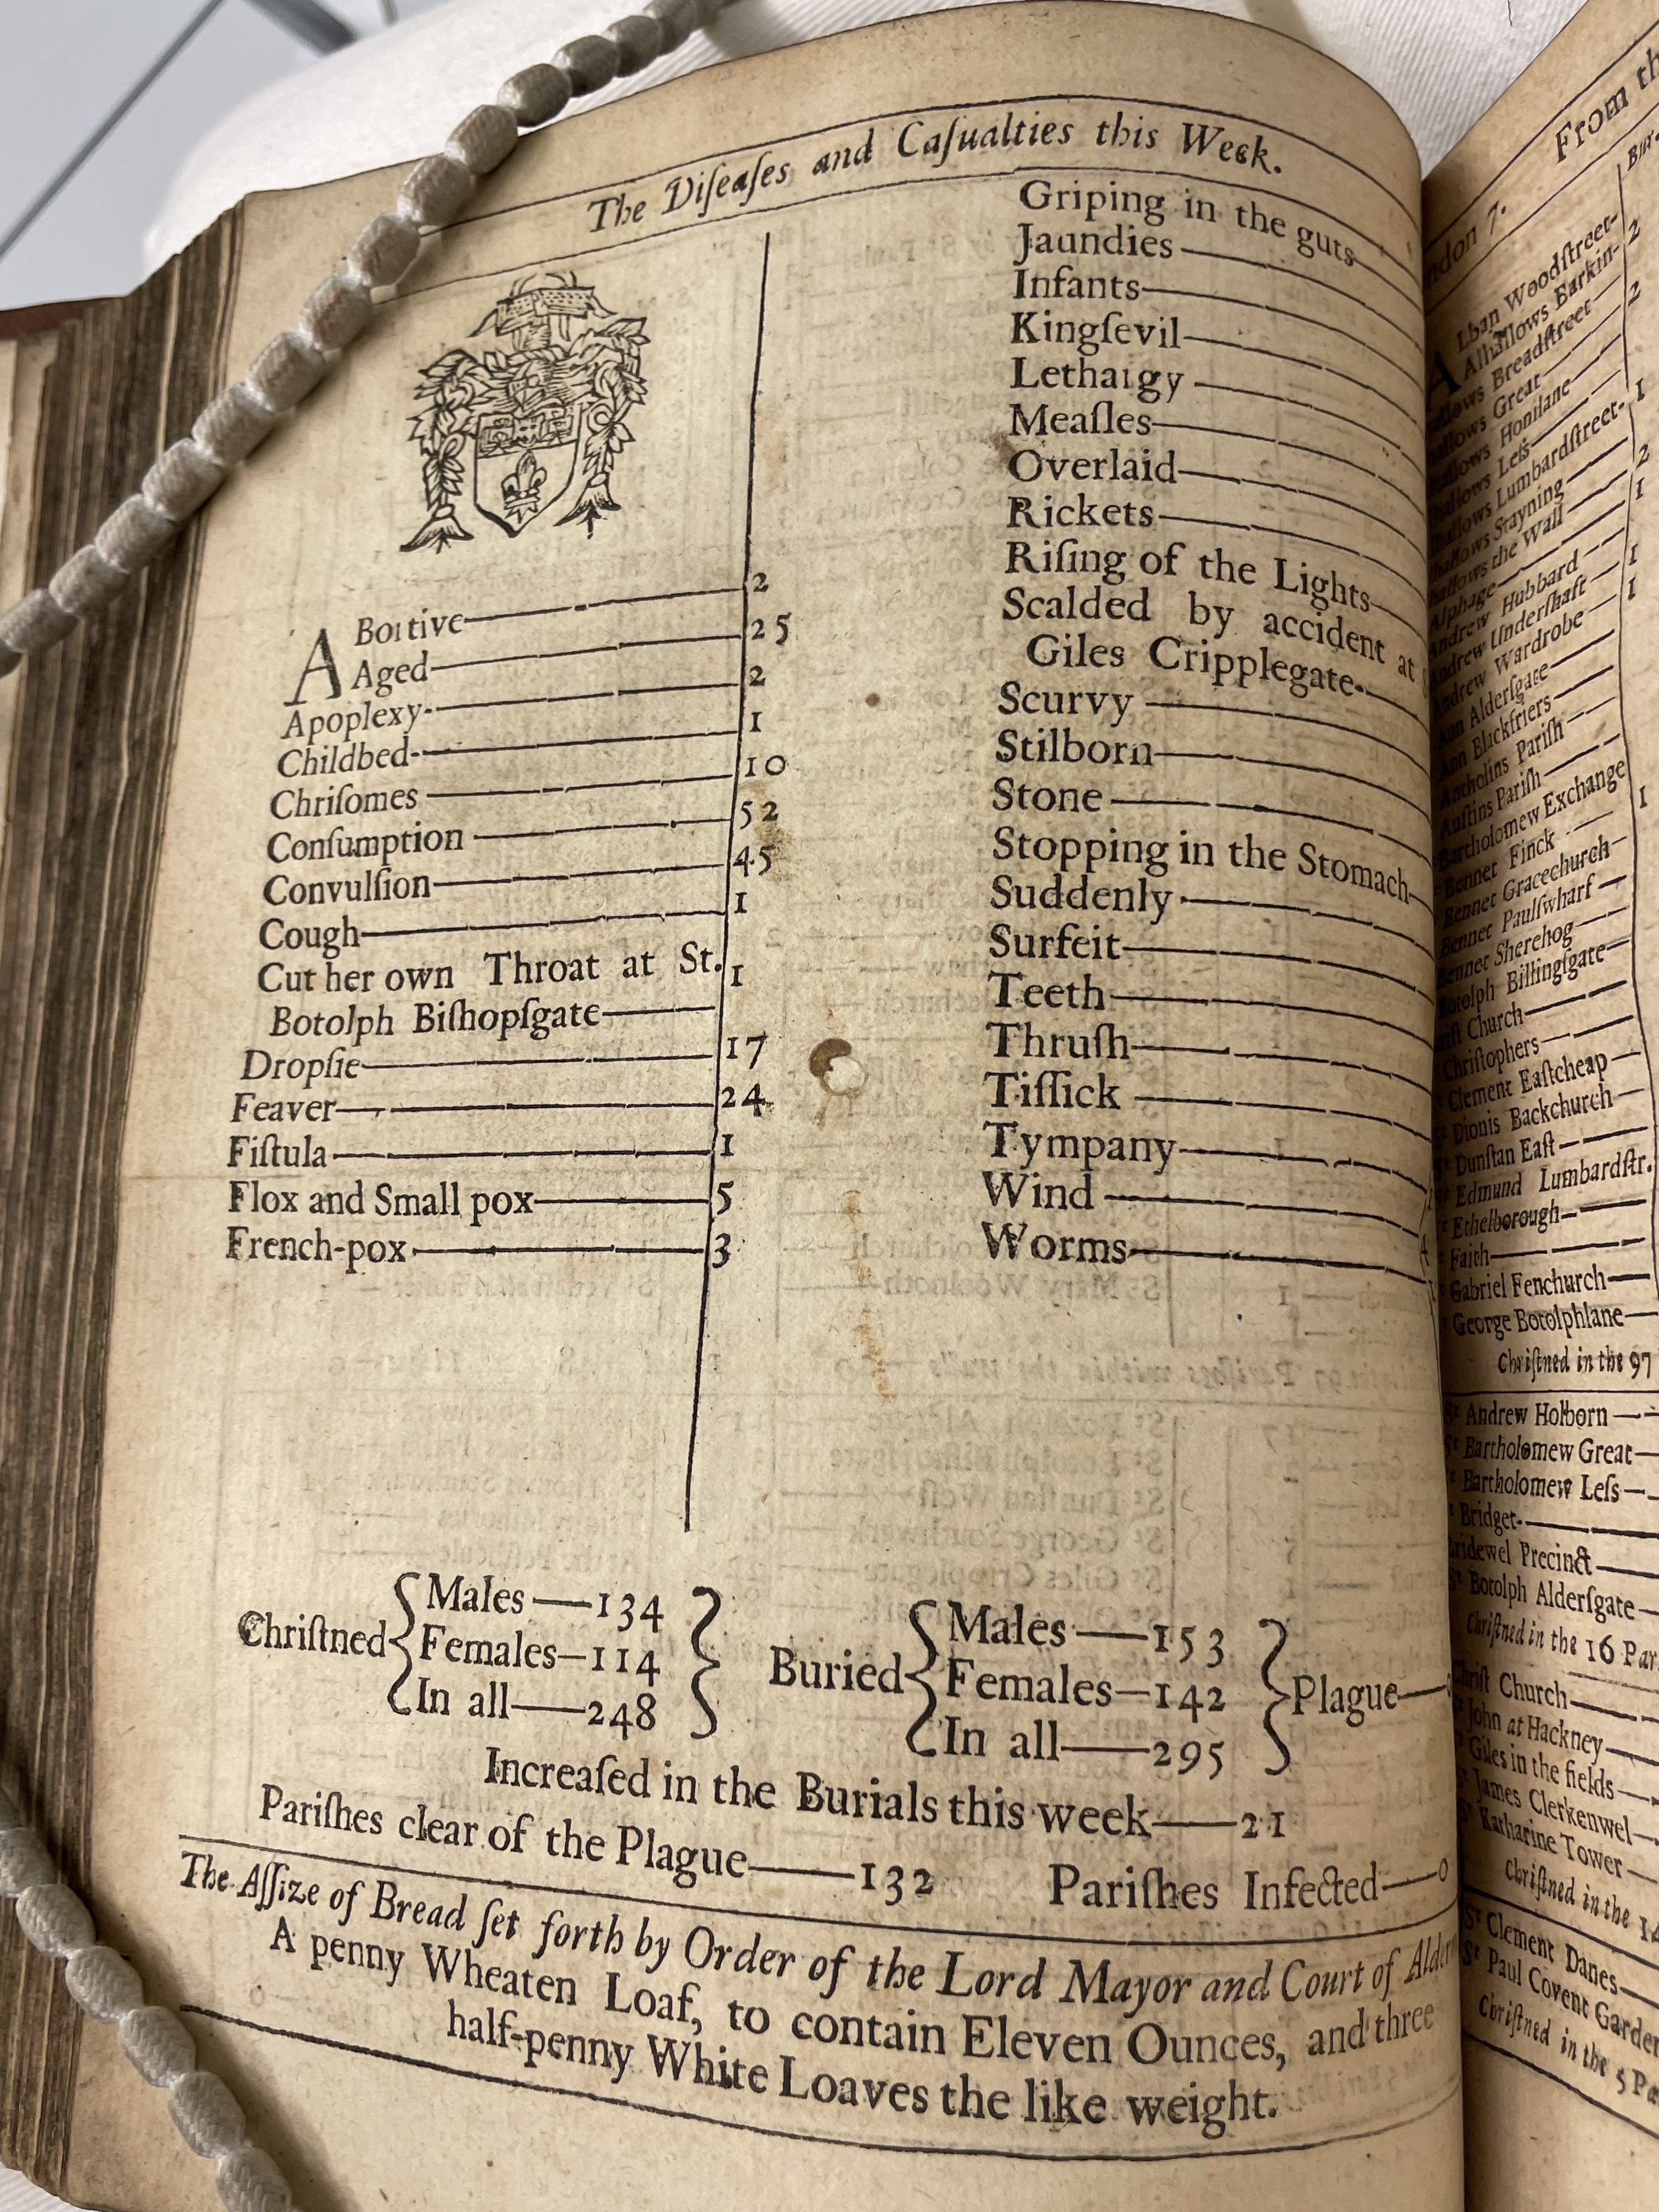 The Diſeaſes and Caſualties this Week.
ABortive 2
Aged 25
Apoplexy 2
Childbed 1
Chriſomes 10
Conſumption 52
Convulſion 45
Cough 1
Cut her own Throat at St.
Botolph Biſhopſgate 1
Dropſie 17
Feaver 24
Fiſtula 1
Flox and Small pox 5
French-pox 3
Griping in the guts
Jaundies
Infants
Kingſevil
Lethargy
Meaſles
Overlaid
Rickets
Riſing of the Lights
Scalded by accident at
Giles Cripplegate
Scurvy
Stilborn
Stone
Stopping in the Stomach
Suddenly
Surfeit
Teeth
Thruſh
Tiſſick
Tympany
Wind
Worms
Chriſtned
Males—134
Females—114
In all—248
Buried
Males—153
Females—142
In all—295
Plague—
Increaſed in the Burials this week—21
Pariſhes clear of the Plague—132 Pariſhes Infected—0
The Aſſize of Bread ſet forth by Order of the Lord Mayor and Court of
A penny Wheaten Loaf, to contain Eleven Ounces, and three
half-penny White Loaves the like weight.
From
Lban Woodſtreet
Alhallows Barkin 2
Breadſtreet 2
Great
Honilane
Leſs
Lumbardſtreet 1
Stayning 2
the Wall 1
Alphage
Andrew Hubbard 1
Andrew Underſhaft 1
Andrew Wardrobe
Ann Alderſgate
Ann Blackfriers
Antholins Pariſh
Auſtins Pariſh
Bartholomew Exchange 1
Bennet Finck
Bennet Gracechurch
Bennet Paulſwharf
Bennet Sherehog
Botolph Billingſgate
Church
Chriſtophers
Clement Eaſtcheap
Dionis Backchurch
Dunſtan Eaſt
Edmund Lumbardſtr.
Ethelborough
Faith
Gabriel Fenchurch
George Botolphlane
Chriſtned in the 97
Sᵗ Andrew Holborn
Sᵗ Bartholomew Great
Bartholomew Leſs
Bridget
Precinct
Botolph Alderſgate
Chriſtned in the 16
Church
John at Hackney
Giles in the fields
James Clerkenwel
Katharine Tower
Chriſtned in the
Sᵗ Clement Danes
Sᵗ Paul Covent Garden
Chriſtned in the 5